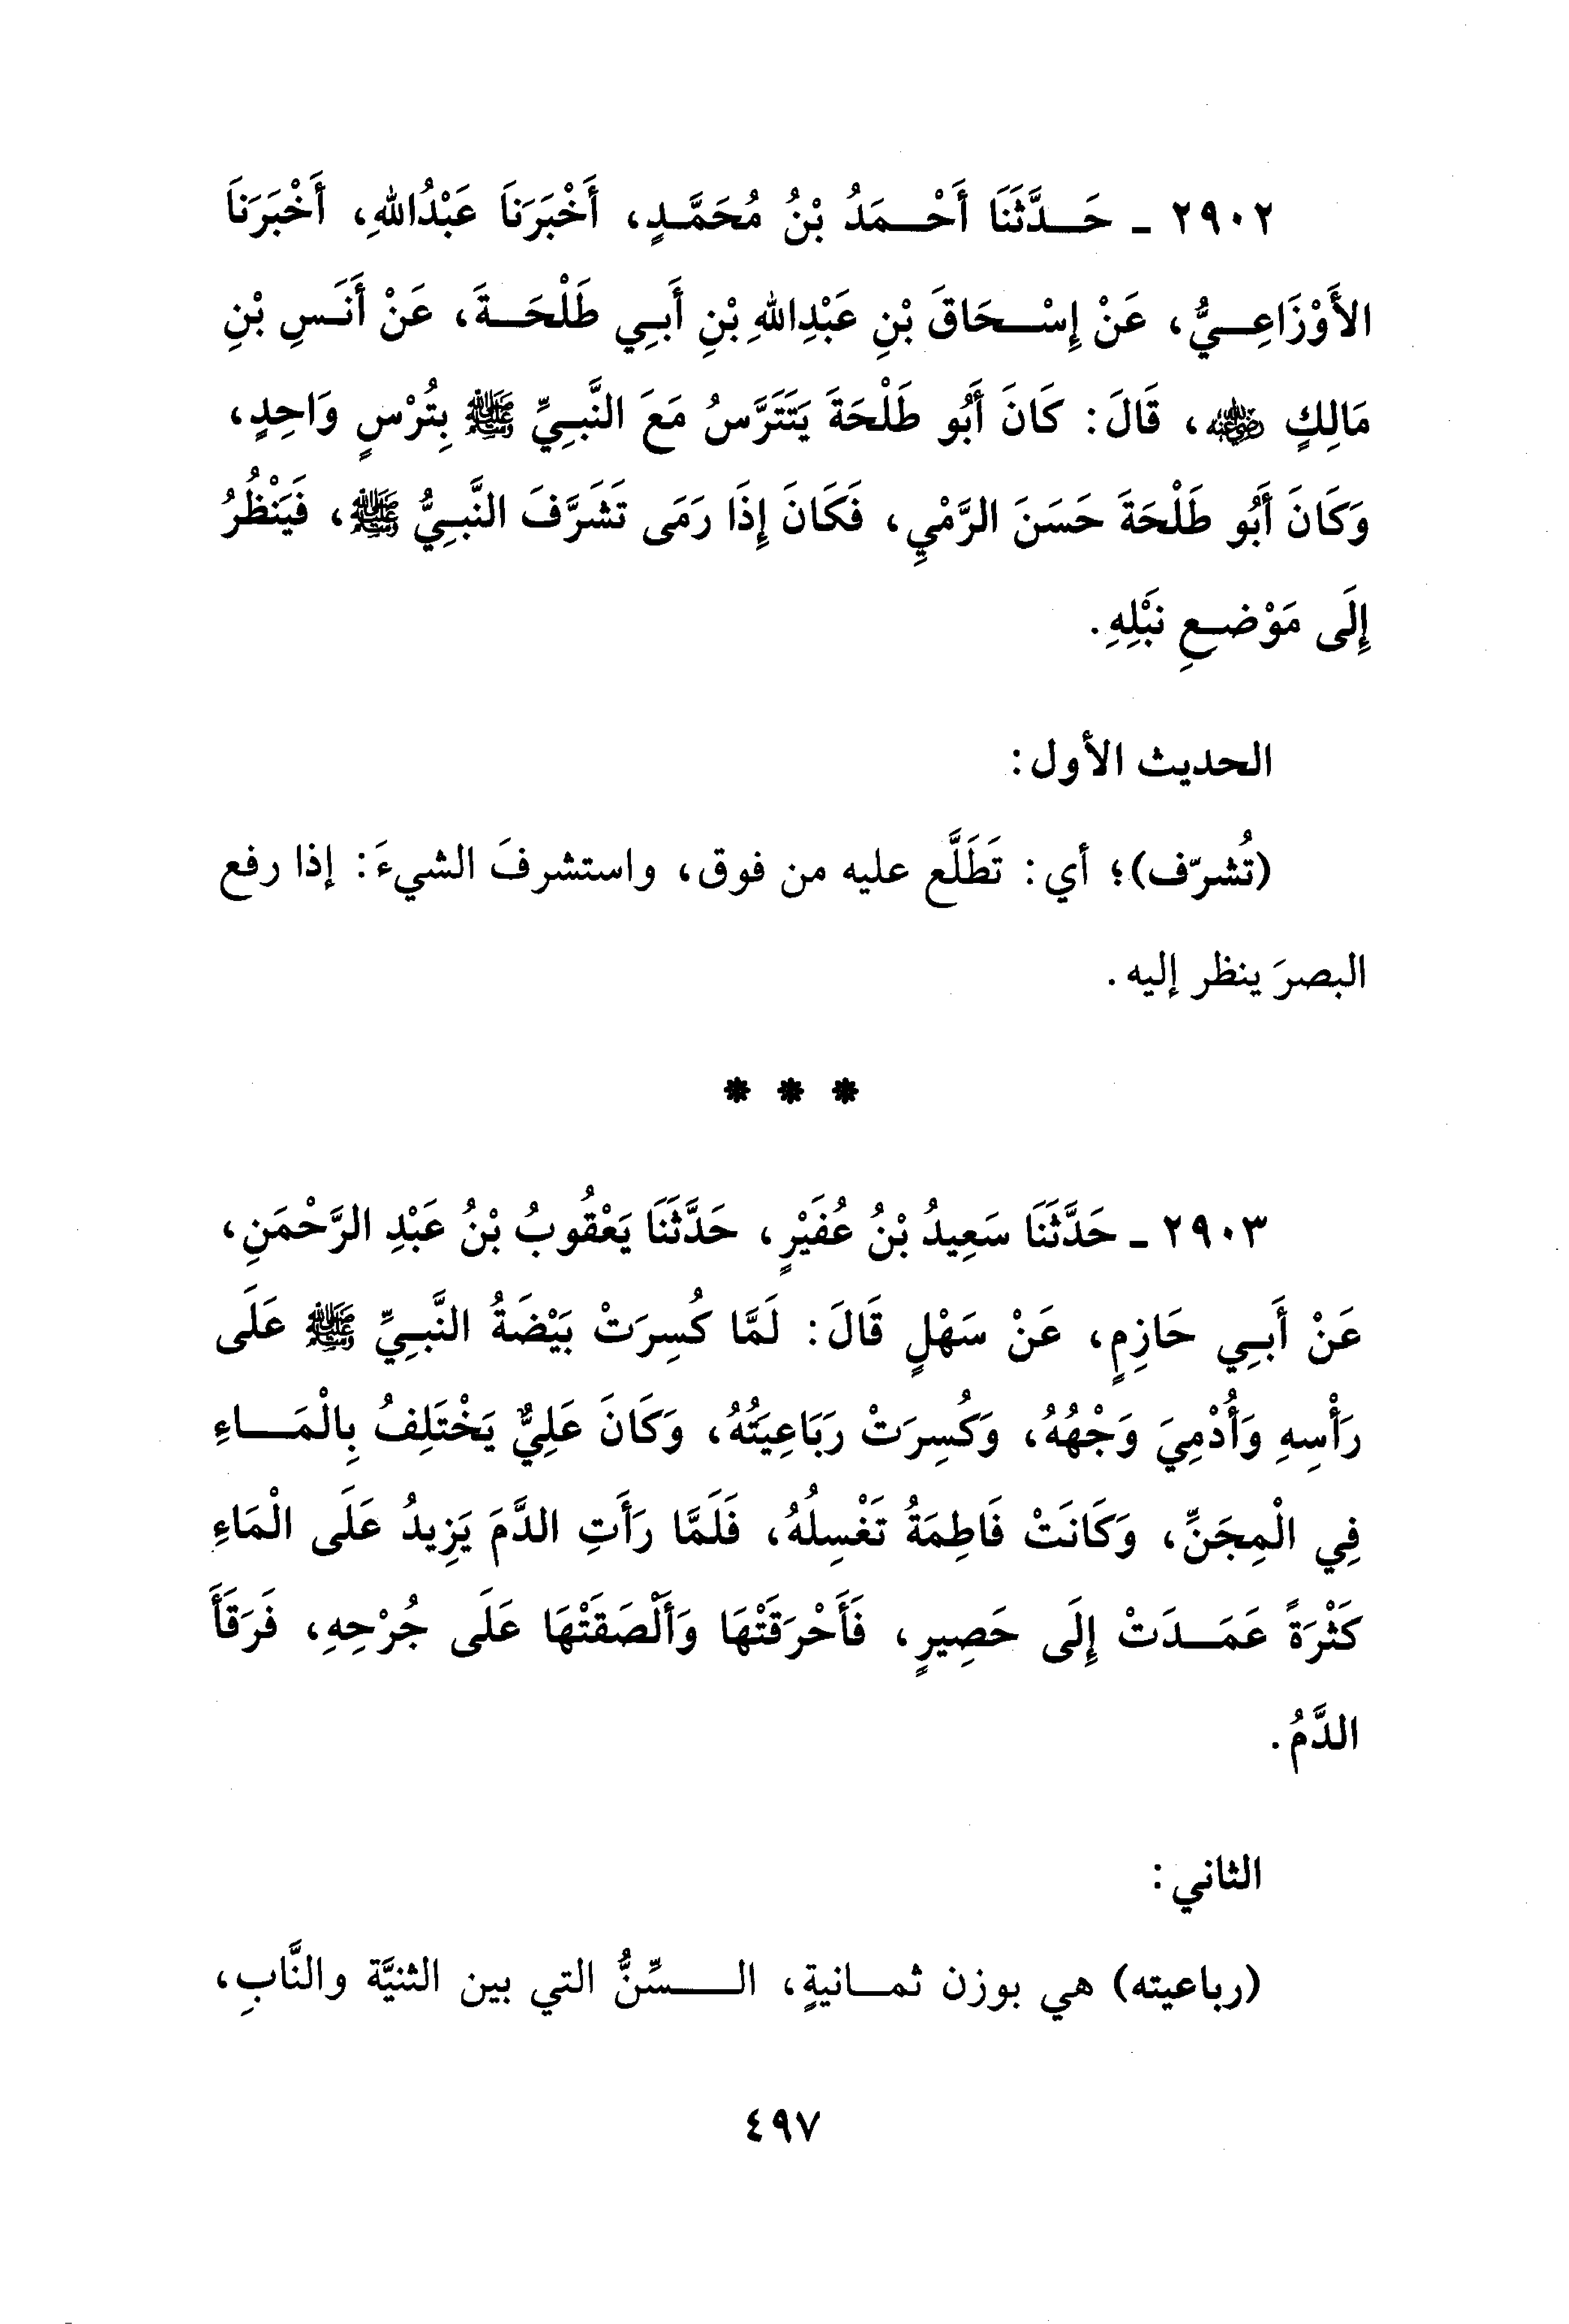 ٢٩٠٢ ـ حَـدَّثَنَا أَحْـمَدُ بْنُ مُحَمَّـدٍ، أَخْبَرَنَا عَبْدُاللهِ، أَخْبَرَنَا
الأَوْزَاعِـيُّ، عَنْ إِسْـحَاقَ بْنِ عَبْدِاللهِ بْنِ أَبِـي طَلْحَـةَ، عَنْ أَنَـسِ بْنِ
مَالِكٍ ﵁، قَالَ: كَانَ أَبُو طَلْحَةَ يَتَتَرَّسُ مَعَ النَّبـِيِّ ﷺ بِتُرْسٍ وَاحِدٍ،
وَكَانَ أَبُو طَلْحَةَ حَسَنَ الرَّمْيِ، فَكَانَ إِذَا رَمَى تَشَرَّفَ النَّبـِيُّ ﷺ، فَيَنْظُرُ
إِلَى مَوْضـعِ نَبْلِهِ.
الحديث الأول:
(تُشرّف)؛ أي: تَطَلَّع عليه من فوق، واستشرفَ الشيءَ: إذا رفع
البصرَ ينظر إليه.
* * *
٢٩٠٣ ـ حَدَّثَنَا سَعِيدُ بْنُ عُفَيْرٍ، حَدَّثَنَا يَعْقُوبُ بْنُ عَبْدِ الرَّحْمَنِ،
عَنْ أَبـِي حَازِمٍ، عَنْ سَهْلٍ قَالَ: لَمَّا كُسِرَتْ بَيْضَةُ النَّبـِيِّ ﷺ عَلَى
رَأْسِهِ وَأُدْمِيَ وَجْهُهُ، وَكُسِرَتْ رَبَاعِيَتُهُ، وَكَانَ عَلِيٌّ يَخْتَلِفُ بِالْمَـاءِ
فِي الْمِجَنِّ، وَكَانَتْ فَاطِمَةُ تَغْسِلُهُ، فَلَمَّا رَأَتِ الدَّمَ يَزِيدُ عَلَى الْمَاءِ
كَثْرَةً عَمَـدَتْ إِلَى حَصِيرٍ، فَأَحْرَقَتْهَا وَأَلْصَقَتْهَا عَلَى جُرْحِهِ، فَرَقَأَ
الدَّمُ.
الثاني:
(رباعيته) هي بوزن ثمـانيةٍ، الـسِّنُّ التي بين الثنيَّة والنَّابِ،
٤٩٧